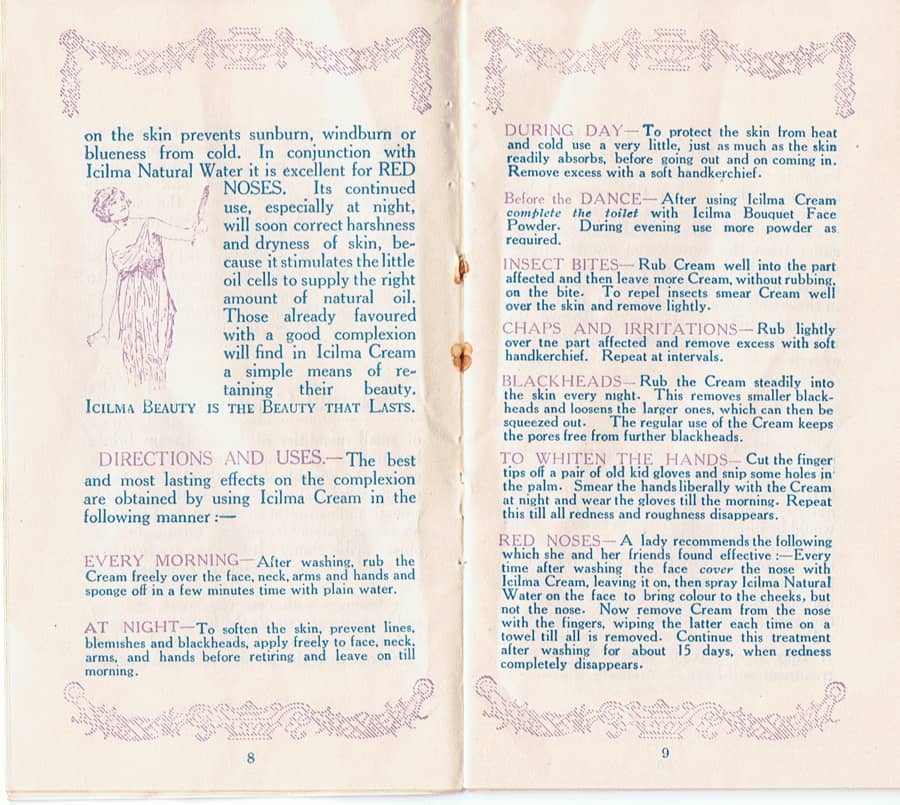 on the skin prevents sunburn, windburn or
blueness from cold. In conjunction with
Icilma Natural Water it is excellent for RED
NOSES. Its continued
use, especially at night,
will soon correct harshness
and dryness of skin, be-
cause it stimulates the little
oil cells to supply the right
amount of natural oil.
Those already favoured
with a good complexion
will find in Icilma Cream
a simple means of re-
taining their beauty.
ICILMA BEAUTY IS THE BEAUTY THAT LASTS.
DIRECTIONS AND USES.—The best
and most lasting effects on the complexion
are obtained by using Icilma Cream in the
following manner :—
EVERY MORNING—After washing, rub the
Cream freely over the face, neck, arms and hands and
sponge off in a few minutes time with plain water.
AT NIGHT—To soften the skin, prevent lines,
blemishes and blackheads, apply freely to face, neck,
arms, and hands before retiring and leave on till
morning.
8
DURING DAY—To protect the skin from heat
and cold use a very little, just as much as the skin
readily absorbs, before going out and on coming in.
Remove excess with a soft handkerchief.
Before the DANCE—After using Icilma Cream
complete the toilet with Icilma Bouquet Face
Powder. During evening use more powder as
required.
INSECT BITES—Rub Cream well into the part
affected and then leave more Cream, without rubbing,
on the bite. To repel insects smear Cream well
over the skin and remove lightly.
CHAPS AND IRRITATIONS—Rub lightly
over tne part affected and remove excess with soft
handkerchief. Repeat at intervals.
BLACKHEADS—Rub the Cream steadily into
the skin every night. This removes smaller black-
heads and loosens the larger ones, which can then be
squeezed out. The regular use of the Cream keeps
the pores free from further blackheads.
TO WHITEN THE HANDS—Cut the finger
tips off a pair of old kid gloves and snip some holes in
the palm. Smear the hands liberally with the Cream
at night and wear the gloves till the morning. Repeat
this till all redness and roughness disappears.
RED NOSES—A lady recommends the following
which she and her friends found effective :—Every
time after washing the face cover the nose with
Icilma Cream, leaving it on, then spray Icilma Natural
Water on the face to bring colour to the cheeks, but
not the nose. Now remove Cream from the nose
with the fingers, wiping the latter each time on a
towel till all is removed. Continue this treatment
after washing for about 15 days, when redness
completely disappears.
9